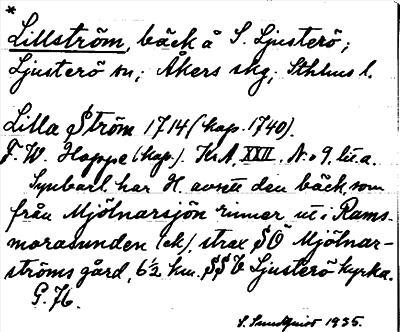 *
Lillström, bäck å S. Ljusterö;
Ljusterö sn; Åkers skg; Sthlms l.
Lilla Ström 1714 (kop. 1740).
F. W. Hoppe (kop.). KrA, XXII, No 9, lit. a.
Synbarl. har H. avsett den bäck, som
från Mjölnarsjön rinner ut i Rams-
morasunden (ek), strax SÖ Mjölnar-
ströms gård, 6½ km. SSV Ljusterö kyrka.
G. H.
S. Sundquist 1935.